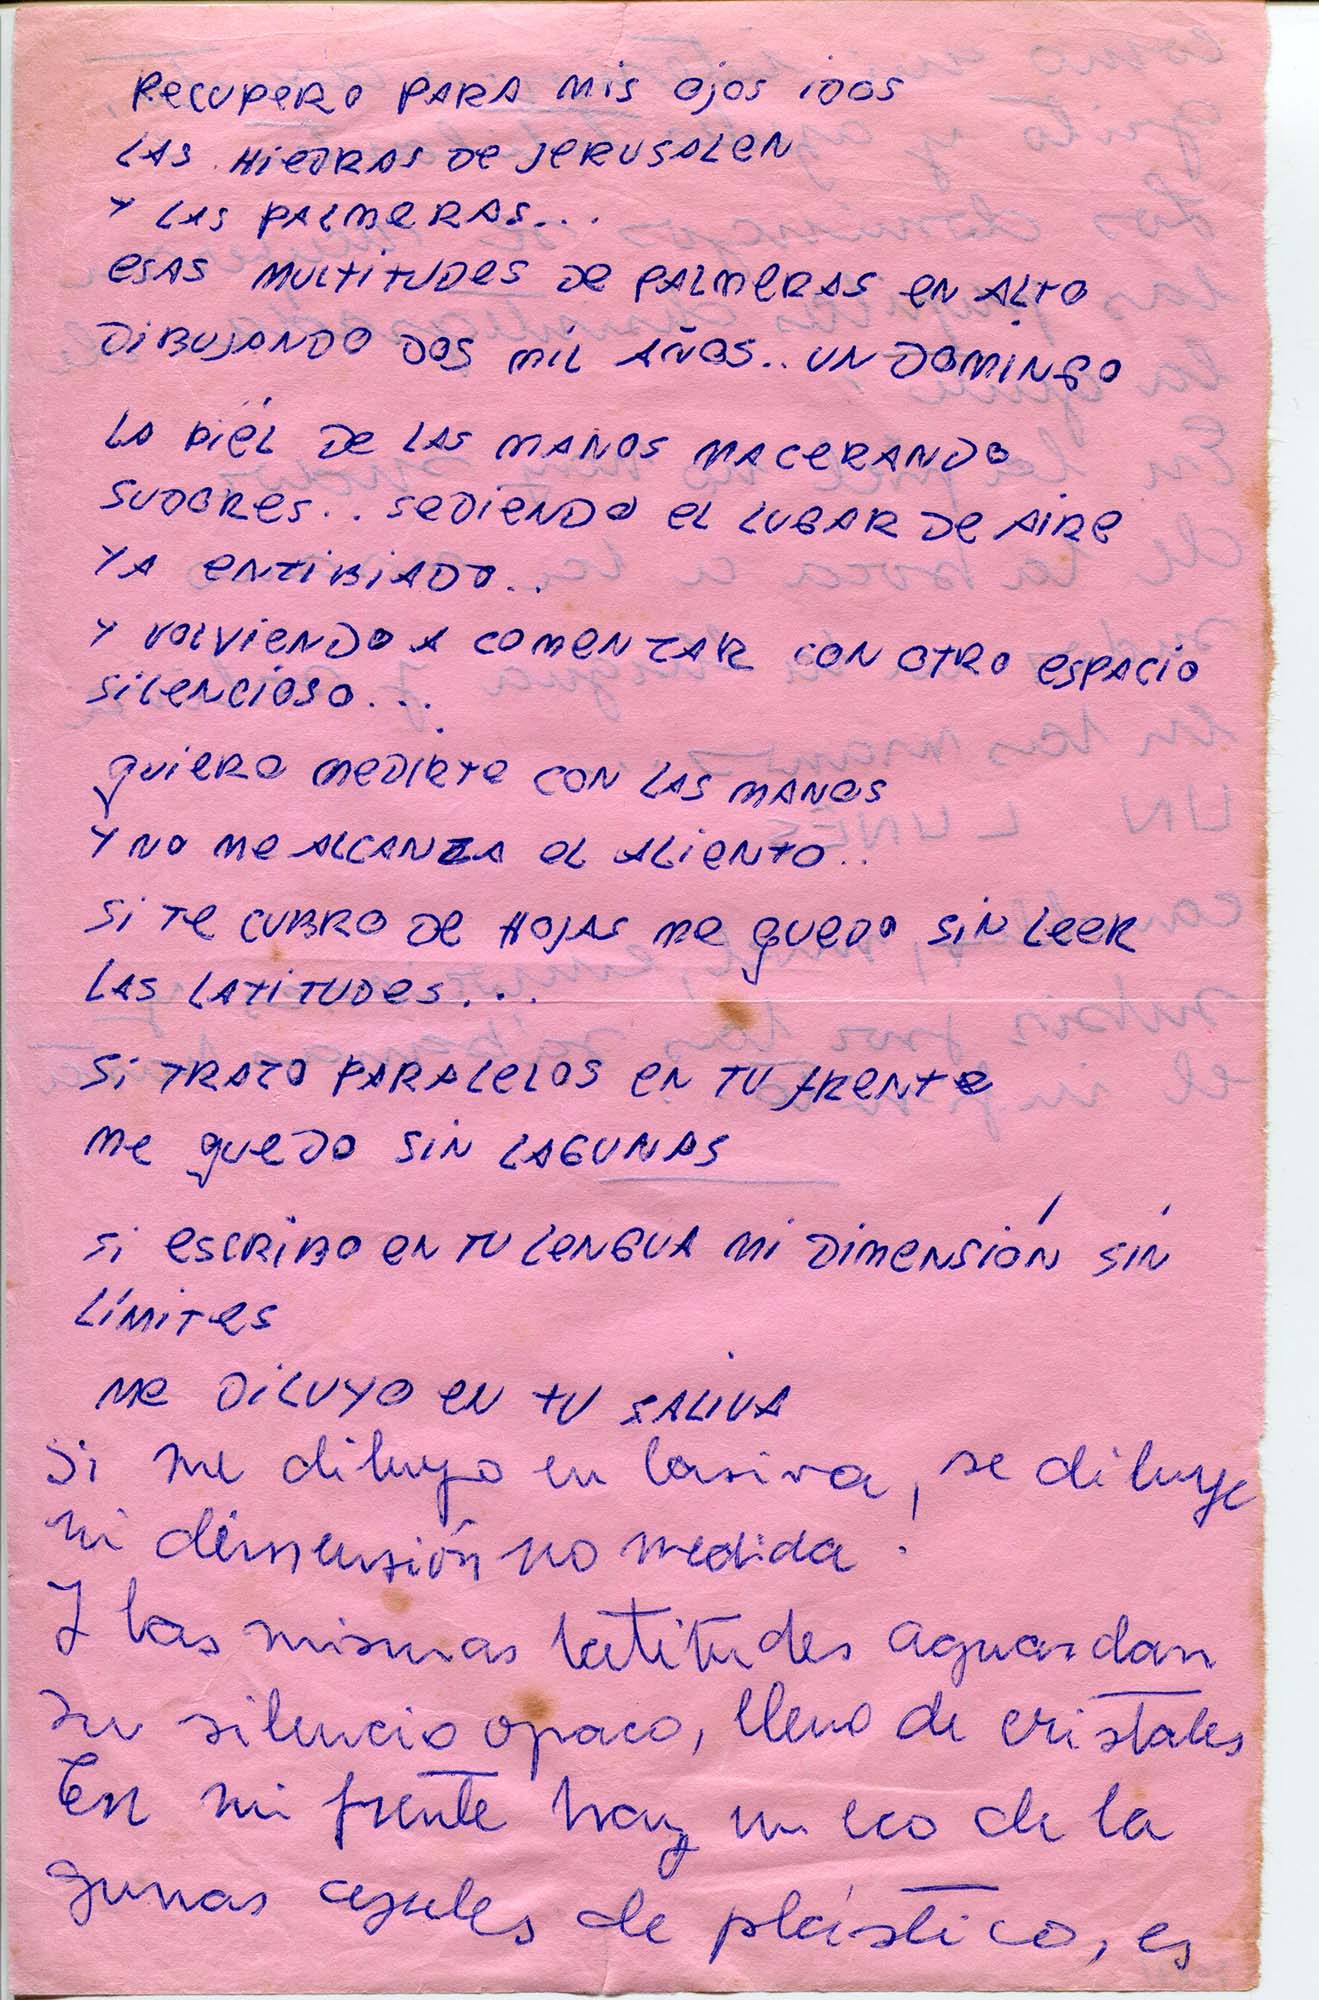 RECUPERO PARA MIS OJOS IDOS
LAS HIEDRAS DE JERUSALEN
Y LAS PALMERAS...
ESAS MULTITUDES DE PALMERAS EN ALTO
DIBUJANDO DOS MIL AÑOS.. UN DOMINGO
LA PIEL DE LAS MANOS MACERANDO
SUDORES.. SEDIENDO EL LUGAR DE AIRE
YA ENTIBIADO..
Y VOLVIENDO A COMENZAR CON OTRO ESPACIO
SILENCIOSO...
QUIERO MEDIRTE CON LAS MANOS
Y NO ME ALCANZA EL ALIENTO..
SI TE CUBRO DE HOJAS ME QUEDO SIN LEER
LAS LATITUDES...
SI TRAZO PARALELOS EN TU FRENTE
ME QUEDO SIN LAGUNAS
SI ESCRIBO EN TU LENGUA MI DIMENSIÓN SIN
LÍMITES
ME DILUYO EN TU SALIVA
Si me diluyo en , se diluye
mi dimensión no medida!
Y las mismas latitudes aguardan
su silencio opaco, lleno de cristales
En mi frente hay un eco de la
gunas azules de plástico, es